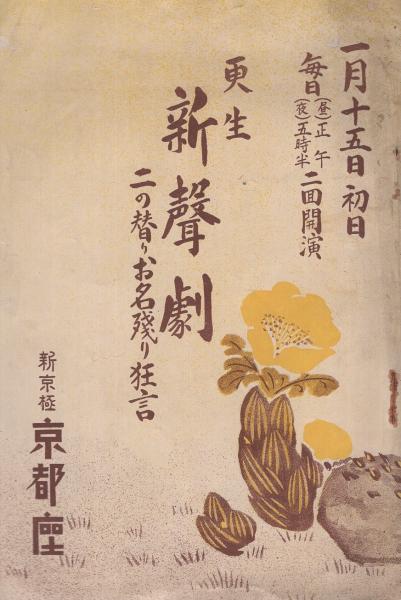 一月十五日初日
毎日(昼)正午(夜)五時半二回開演
更生
新聲劇
二の替りお名残り狂言
新京極
京都座